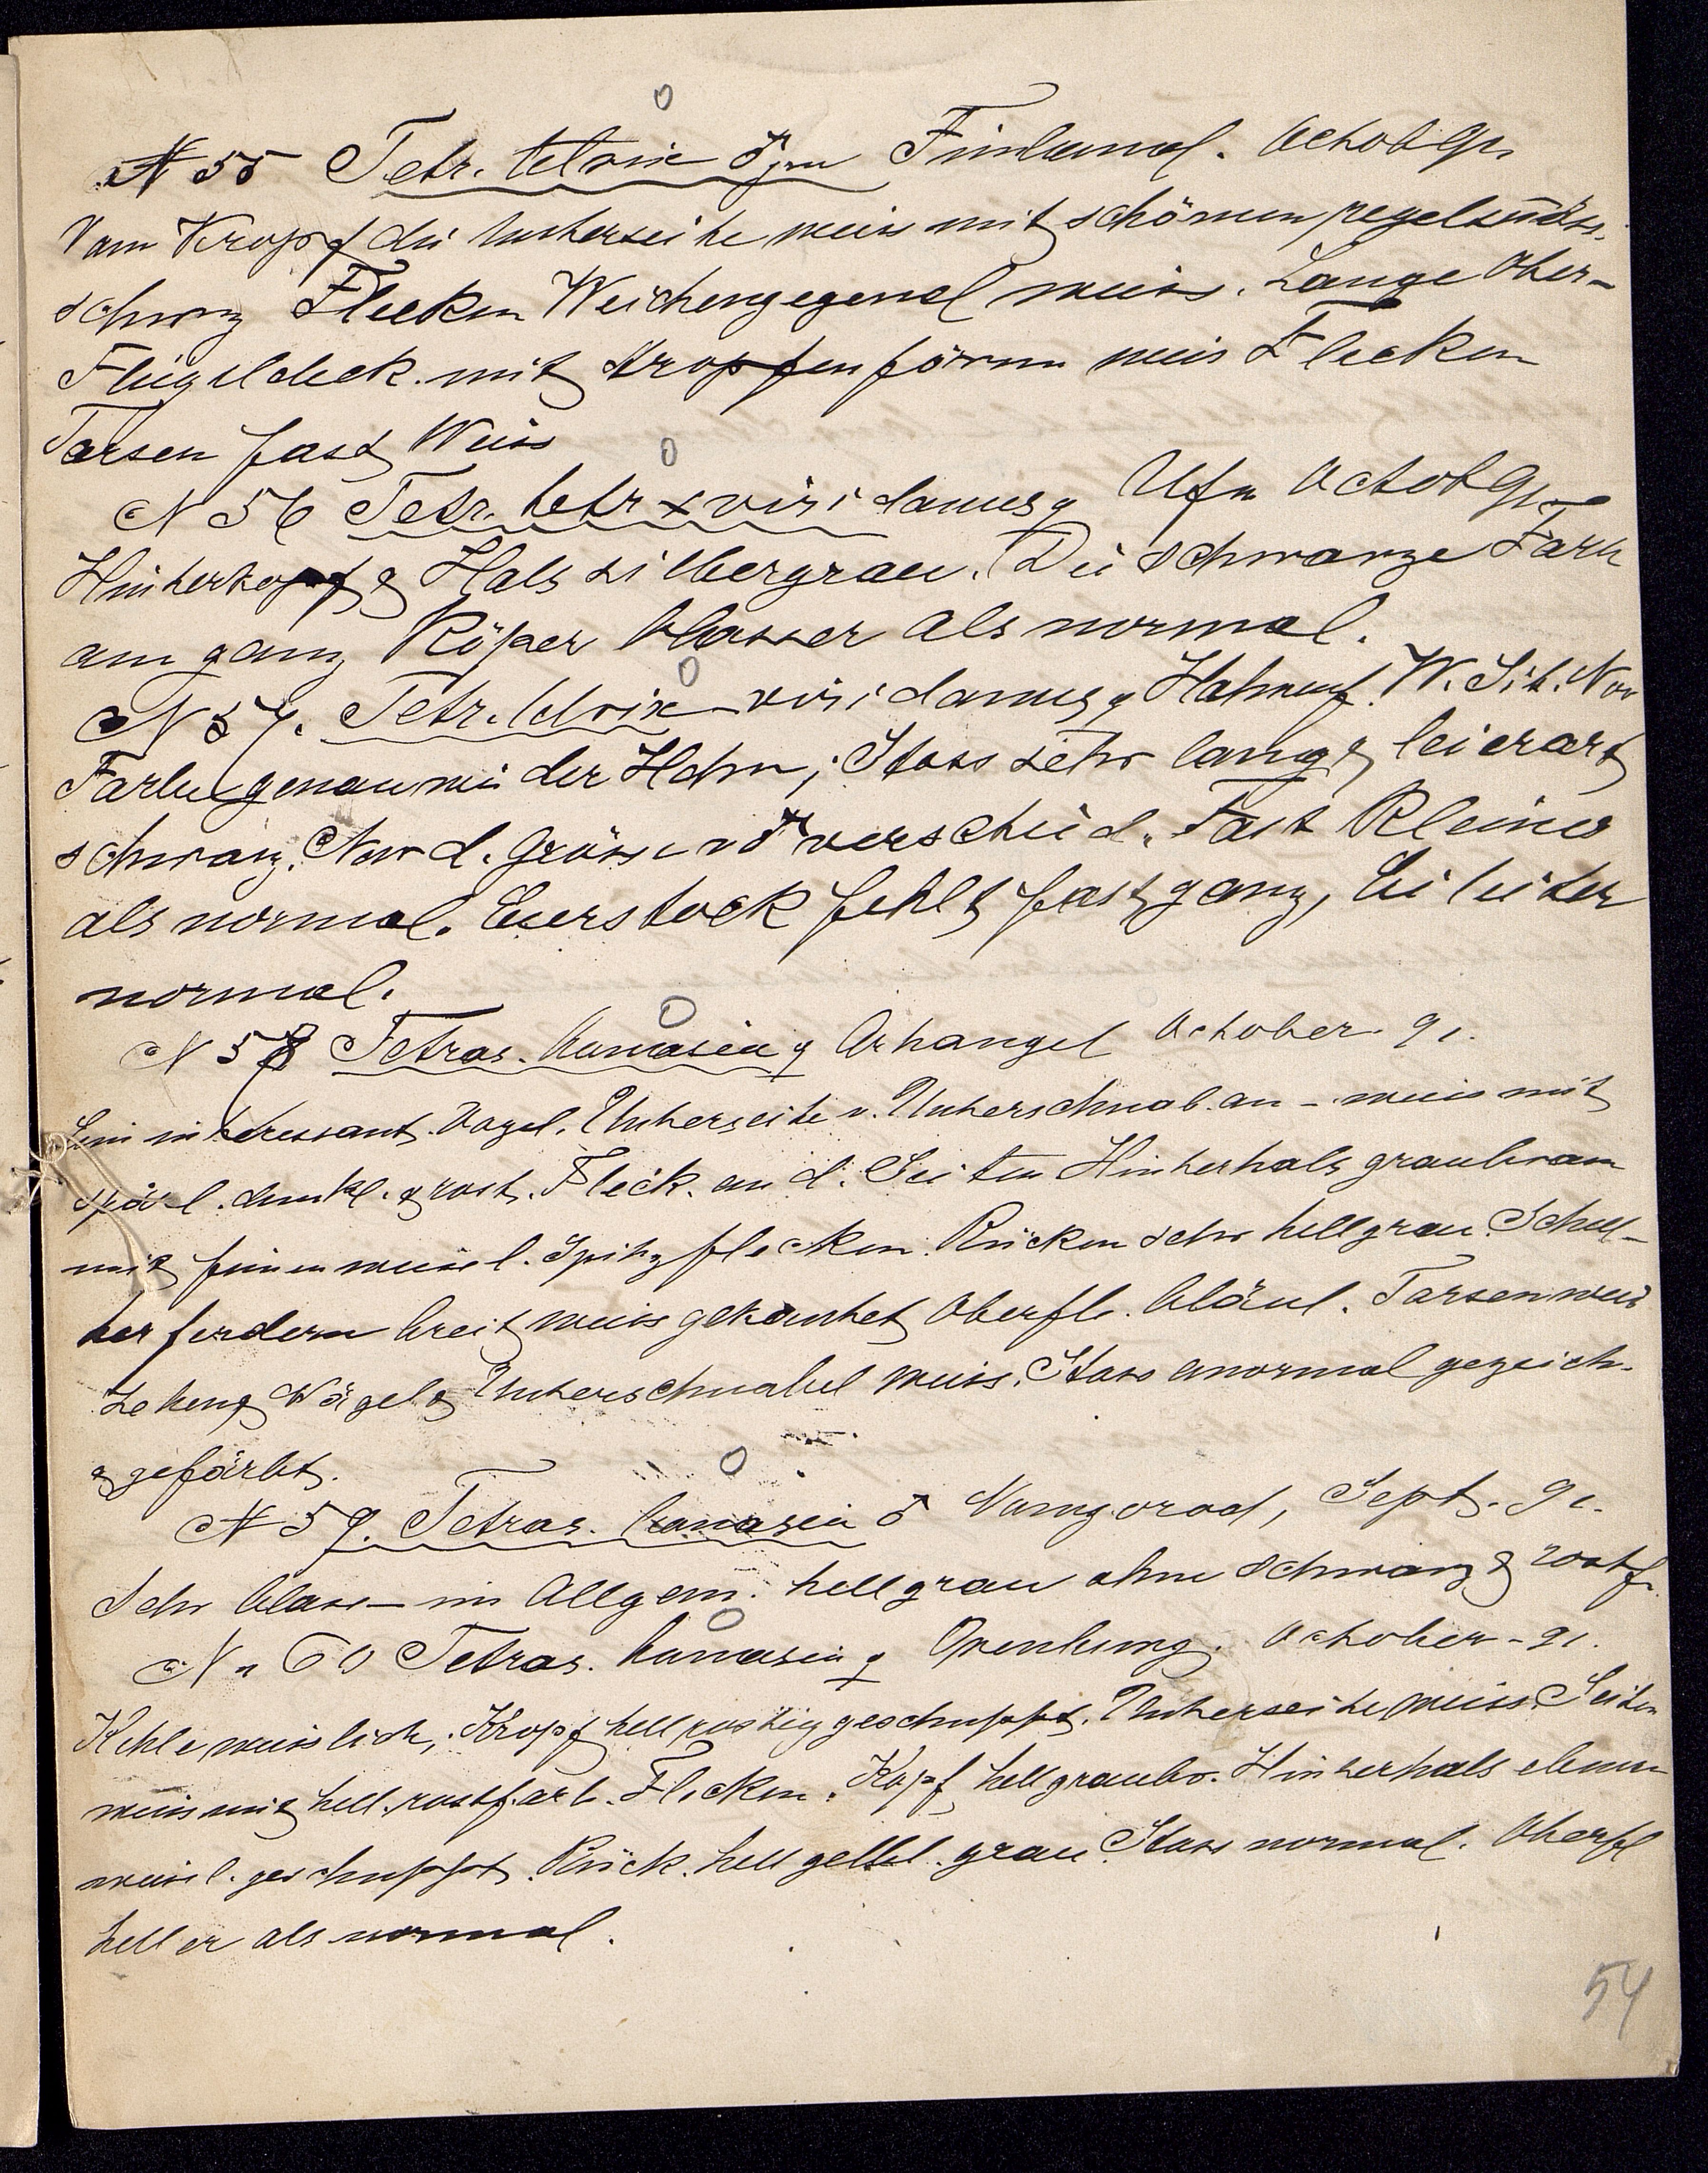 N 55 Tetr. tetrix ♂ jun Finland. Octob 91
Vom Kropf die Unterseite weiss mit schönen regelmäss.
schwrz Flecken Weichengegend weiss. Lange Ober-
Flügeldeck. mit tropfenförm weis Flecken
Tarsen fast Weiss
N 56 Tetr. tetr x viridanus ♀ Ufa Octob 91
Hinterkopf & Hals silbergrau. Die schwarze Farb
am ganz Köper blasser als normal.
N 57. Tetr. tetrix viridanus ♀ Hahnenf. W. Sib. Nov
Farbe genau wie der Hahn; Stoss sehr lang & leierart
schwarz. Nur d. Grösse v ♂ verschied. Fast kleiner
als normal. Eierstock fehlt fast ganz, Eileiter
normal.
N 58 Tetras. bonasia ♀ Arhangel October 91.
Ein interessant. Vogel. Unterseite v. Unterschnab. an - weis mit
spärl. dunkl. & rostr. Fleck. an d. Seiten Hinterhals graubraun
mit feinen weissl. Spitzflecken. Rücken sehr hellgrau. Schul-
terferdern breit weiss gekantet Oberfl. bläul. Tarsen weis
Zehen & Nägel & Unterschnabel weiss. Stoss anormal gezeich.
& gefärbt.
N 59. Tetras. bonasia ♂ Nowgorod, Sept. 91.
Sehr blass - im Allgem. hellgrau ohne schwarz & rostf.
N 60 Tetras. bonasia ♀ Orenburg. October - 91.
Kehle weisslich, Kropf hell rostig geschuppt. Unterseite weiss. Seiten
weiss mit hell. rostfarb. Flecken. Kopf hell graubr. Hinterhals ebenso
weissl. geschuppt. Rück. hell gelbl. grau. Stoss normal. Oberfl
heller als normal.
54